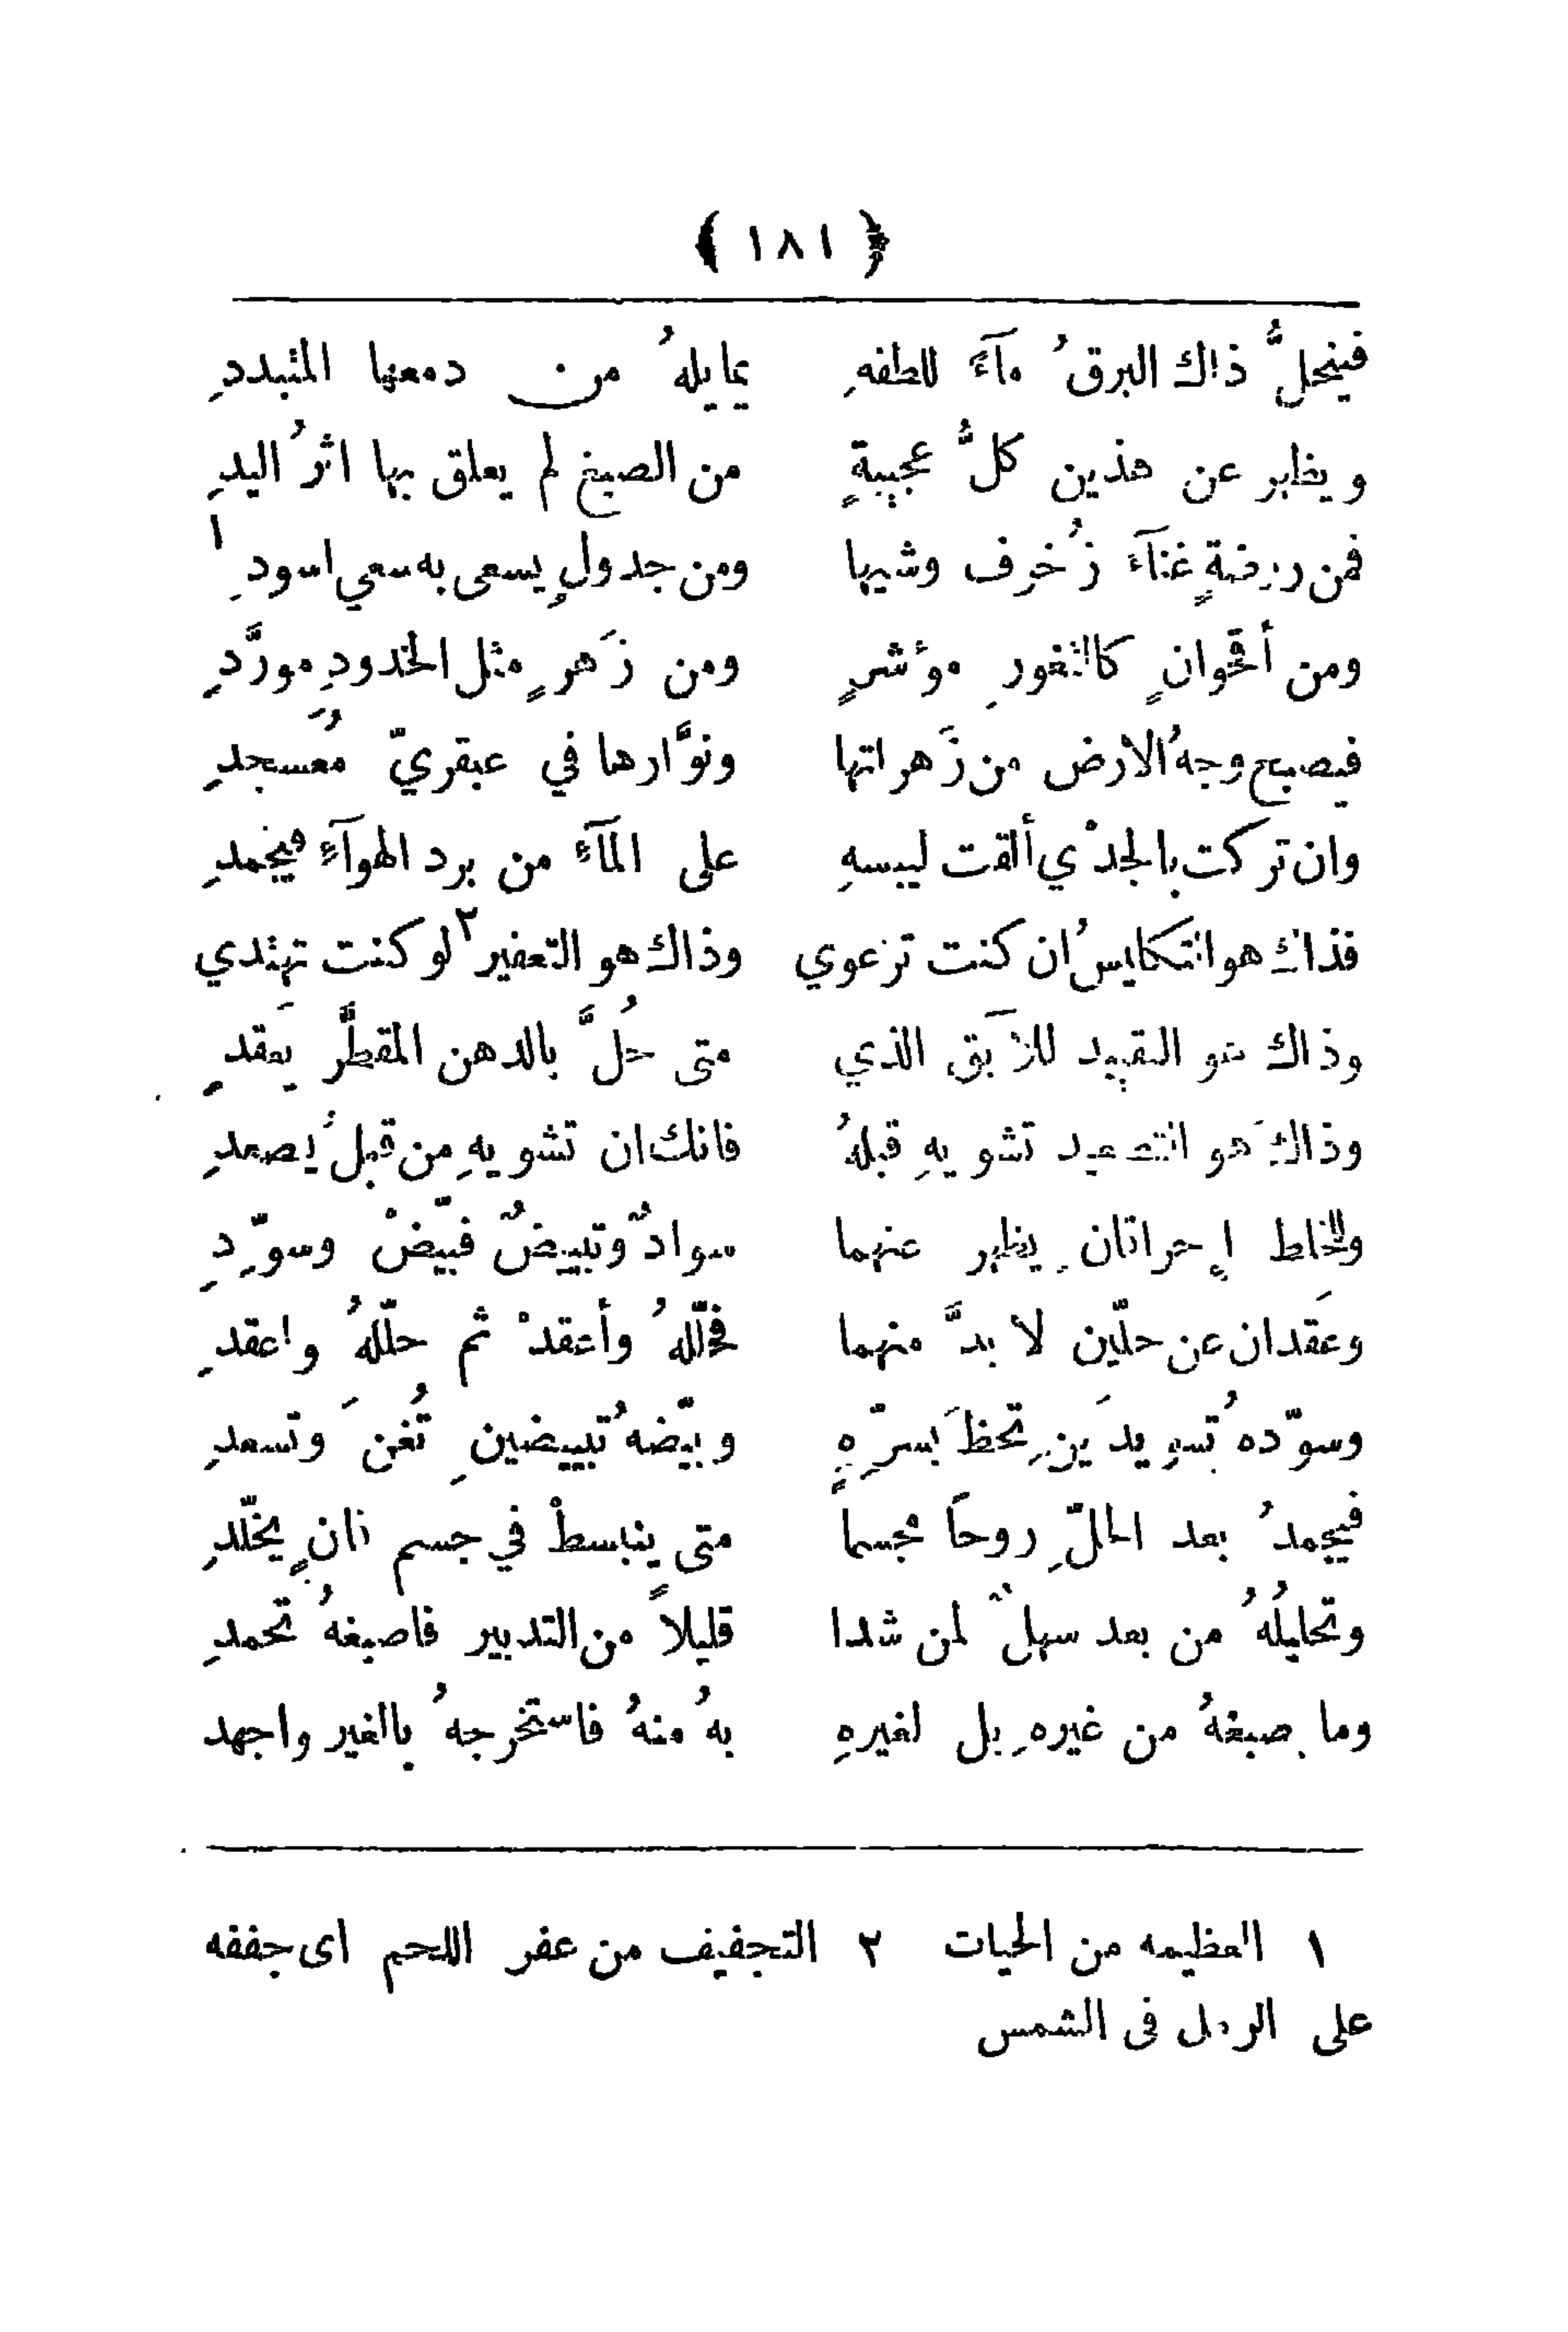 ﴿ ١٨١ ﴾
فينحلُّ ذاك البرقُ مآءً للطفهِ بما يلهُ من دمعها المتبددِ
ويظهر عن هذين كلُّ عجيبةٍ من الصبغ لم يعلق بها اثرُ اليدِ
فمن روضةٍ غنآءَ زُخرف وشيها ومن جدولٍ يسعى به سعي اسودِ ١
ومن أقحوانٍ كالثغورِ مؤشرٍ ومن زَهرٍ مثل الخدودِ مورَّدِ
فيصبح وجهُ الارض من زَهراتها ونوَّارها في عبقريّ مُعسجدِ
وان تركت بالجدْي ألقت ليبسهِ على المآءِ من برد الهوآءِ فيخمدِ
فذاك هو التكليسُ ان كنت ترعوي وذاك هو التعفير ٢ لو كنت تهتدي
وذاك هو التقييد للآبق الذي متى حُلَّ بالدهن المقطَّر يَعقدِ
وذاكَ هو التصعيد تشويهِ قبلهُ فانك ان تشويهِ من قبلُ يصعدِ
وللخلط إحراقانِ يظهر عنهما سوادٌ وتبييضٌ فبيّضْ وسوّدِ
وعَقدان عن حلّين لا بدَّ منهما فحلّلهُ وأعقدْ ثم حلّلهُ واعقدِ
وسوّدهُ تسويدَينِ تحظَ بسرّهِ وبيّضهُ تبييضينِ تُغنَ وتسعدِ
فيجمدُ بعد الحلّ روحاً مجسما متى ينبسطْ في جسم فانٍ يخلّدِ
وتحليلُهُ من بعد سهلٌ لمن شدا قليلاً من التدبير فاصبغهُ تحمدِ
وما صبغهُ من غيرهِ بل لغيرهِ بهُ منهُ فاستخرجهُ بالغير واجهد
١ العظيمه من الحيات ٢ التجفيف من عفر اللحم اى جففه
على الرمل فى الشمس